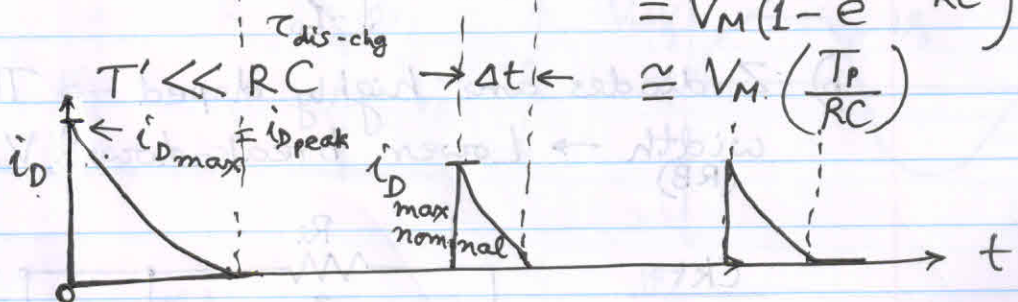 = V_M (1 - e^{RC})
τ_dis-chg
T' << RC → Δt ← ≅ V_M. (T_P / RC)
← i_Dmax = i_Dpeak
i_D
i_D max nominal
t
o